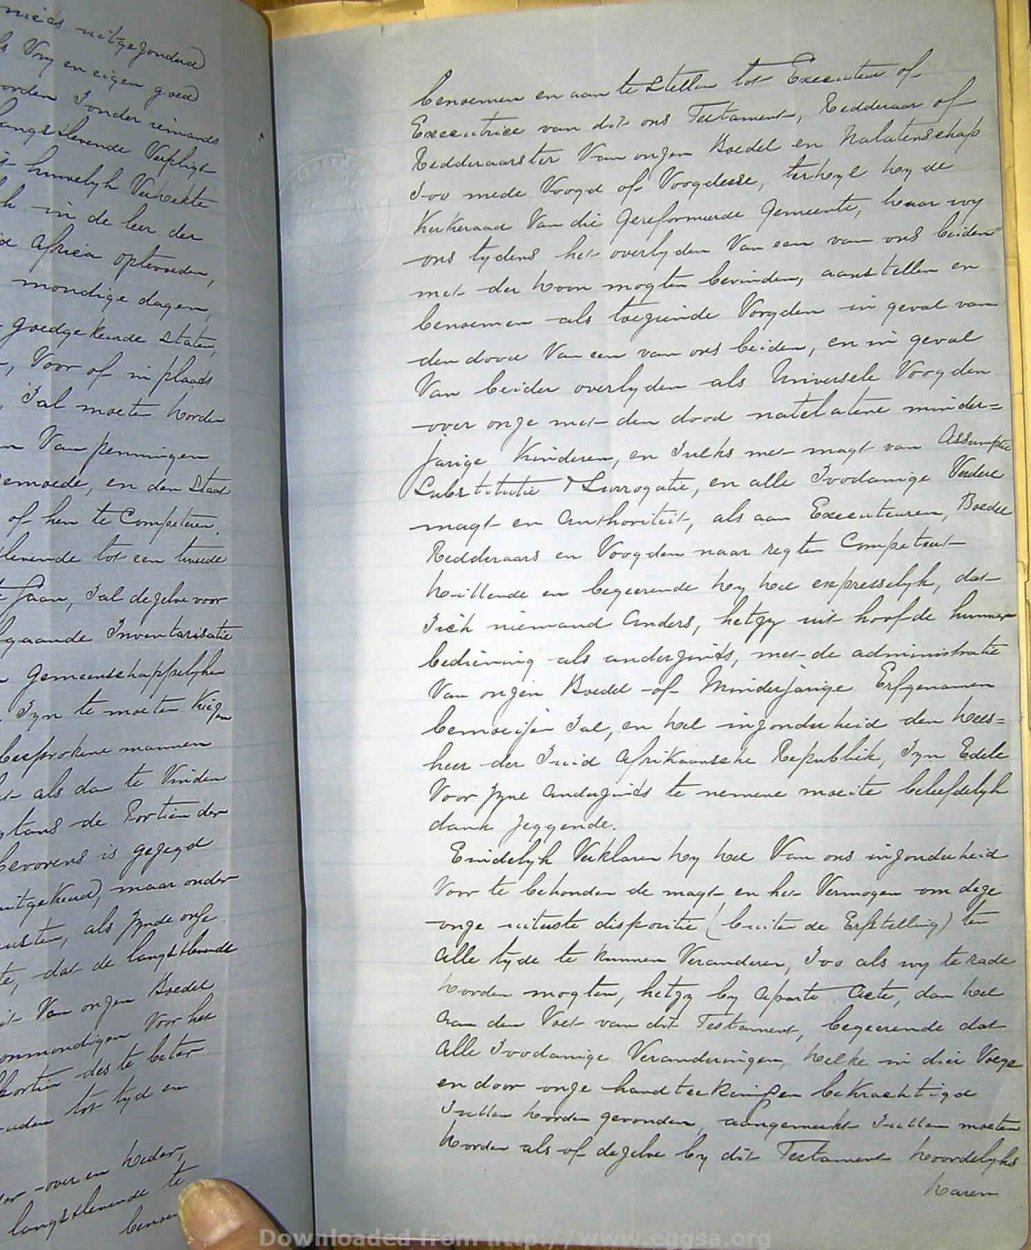 nieës uitgezonderd
Vry en eigen goed
orden Zonder iemands
langstlevende Verpligt
huwelyk Verwekte
in de leer der
Africa optevoeden,
mondige dagen,
goedgekeurde Staten,
Voor of in plaats
Zal moeten worden
Van penningen
gemoede, en den Staat
of hen te Competeren.
levende tot een tweede
gaan, Zal dezelve voor
gaande Inventarisatie
gemeenschappelyken
Zyn te moeten Kiezen
besprokene mannen
als dan te Vinden
de Portien der
bevorens is gezegd
uitgekeerd, maar onder
als Zynde onze
te, dat de langstlevende
uit Van onzen Boedel
Voor het
Portien des te beter
tot tyd en
over en weder,
langstlevende te
benoemen en aan te Stellen tot Executeur of
Executrice van dit ons Testament, Redderaar of
Redderaarster Van onzen Boedel en Nalatenschap
Zoo mede Voogd of Voogdesse, terwyl wy de
Kerkeraad Van die Gereformeerde Gemeente, waar wy
ons tydens het overlyden Van een van ons beiden
met der woon mogten bevinden, aanstellen en
benoemen als toeziende Voogden in geval van
den dood Van een van ons beiden, en in geval
Van beider overlyden als Universele Voogden
over onze met den dood natelatene minder=
jarige Kinderen, en Zulks met magt van Assumptie
Substitutie & Surrogatie, en alle Zoodanige Verdere
magt en Authoriteit, als aan Executeuren, Boedel
Redderaars en Voogden naar regten Competeert
Willende en begeerende wy wel expresselyk, dat
Zich niemand Anders, hetzy uit hoofde hunner
bediening als anderzints, met de administratie
Van onzen Boedel of Minderjarige Erfgenamen
bemoeijen Zal, en wel inzonderheid den Wees=
heer der Zuid Afrikaansche Republiek, Zyn Edele
Voor Zyne Anderzints te nemene moeite beleefdelyk
dank Zeggende.
Eindelyk Verklaren wy wel Van ons inzonderheid
Voor te behouden de magt en het Vermogen om deze
onze uiterste dispositie (buiten de Erfstelling) ten
Alle tyde te kunnen Veranderen, Zoo als wy te rade
worden mogten, hetzy by Aparte Acte, dan wel
Aan den Voet van dit Testament, begeerende dat
Alle Zoodanige Veranderingen, welke in dier Voege
en door onze handteekeningen bekrachtigd
Zullen worden gevonden, aangemerkt Zullen moeten
worden als of dezelve by dit Testament woordelyks
waren
Downloaded from http://www.eggsa.org